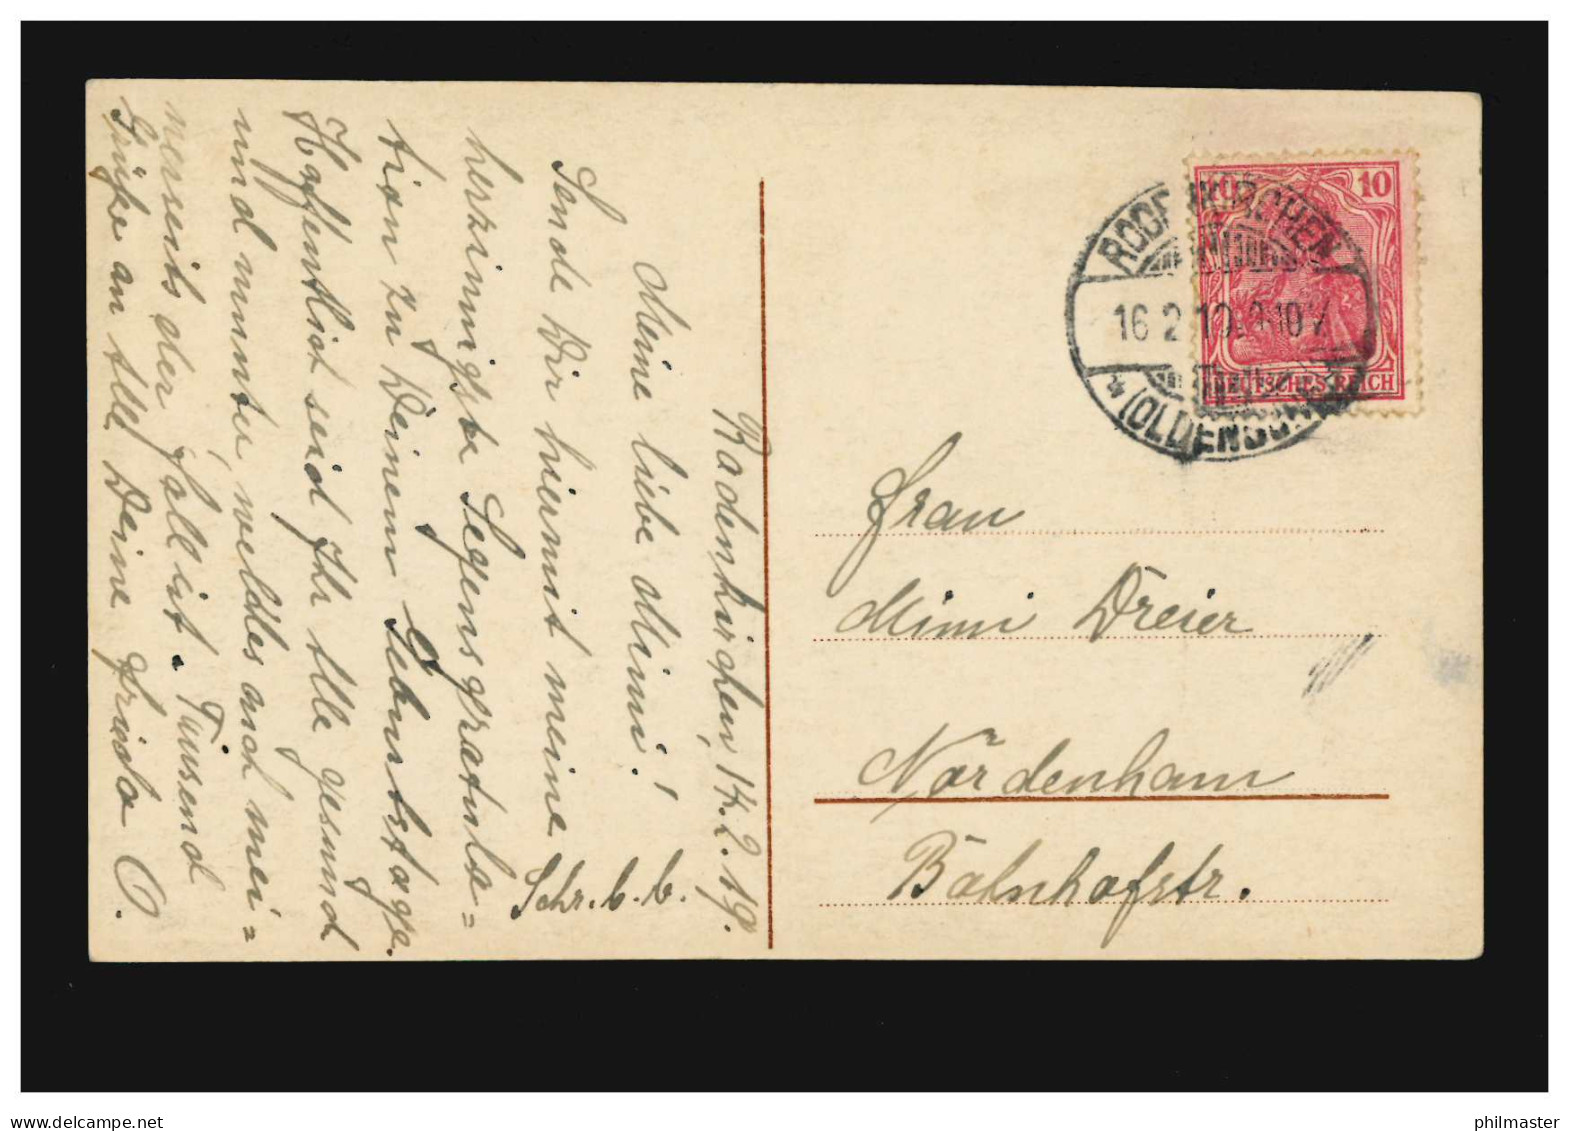 Rodenkirchen, 14.2.19.
Meine liebe Mimi!
Sende Dir hiermit meine
herzinnigste Segensgratula=
tion zu Deinem Geburtstage.
Hoffentlich seid Ihr Alle gesund
und munter, welches auch mei=
nerseits der Fall ist. Tausend
Grüße an Alle Deine Frieda O.
Schr. b. b.
RODENKIRCHEN
16.2.19. 9-10V
(OLDENBURG)
10 10
DEUTSCHES REICH
Frau
Mimi Dreier
Nordenham
Bahnhofstr.
www.delcampe.net
philmaster